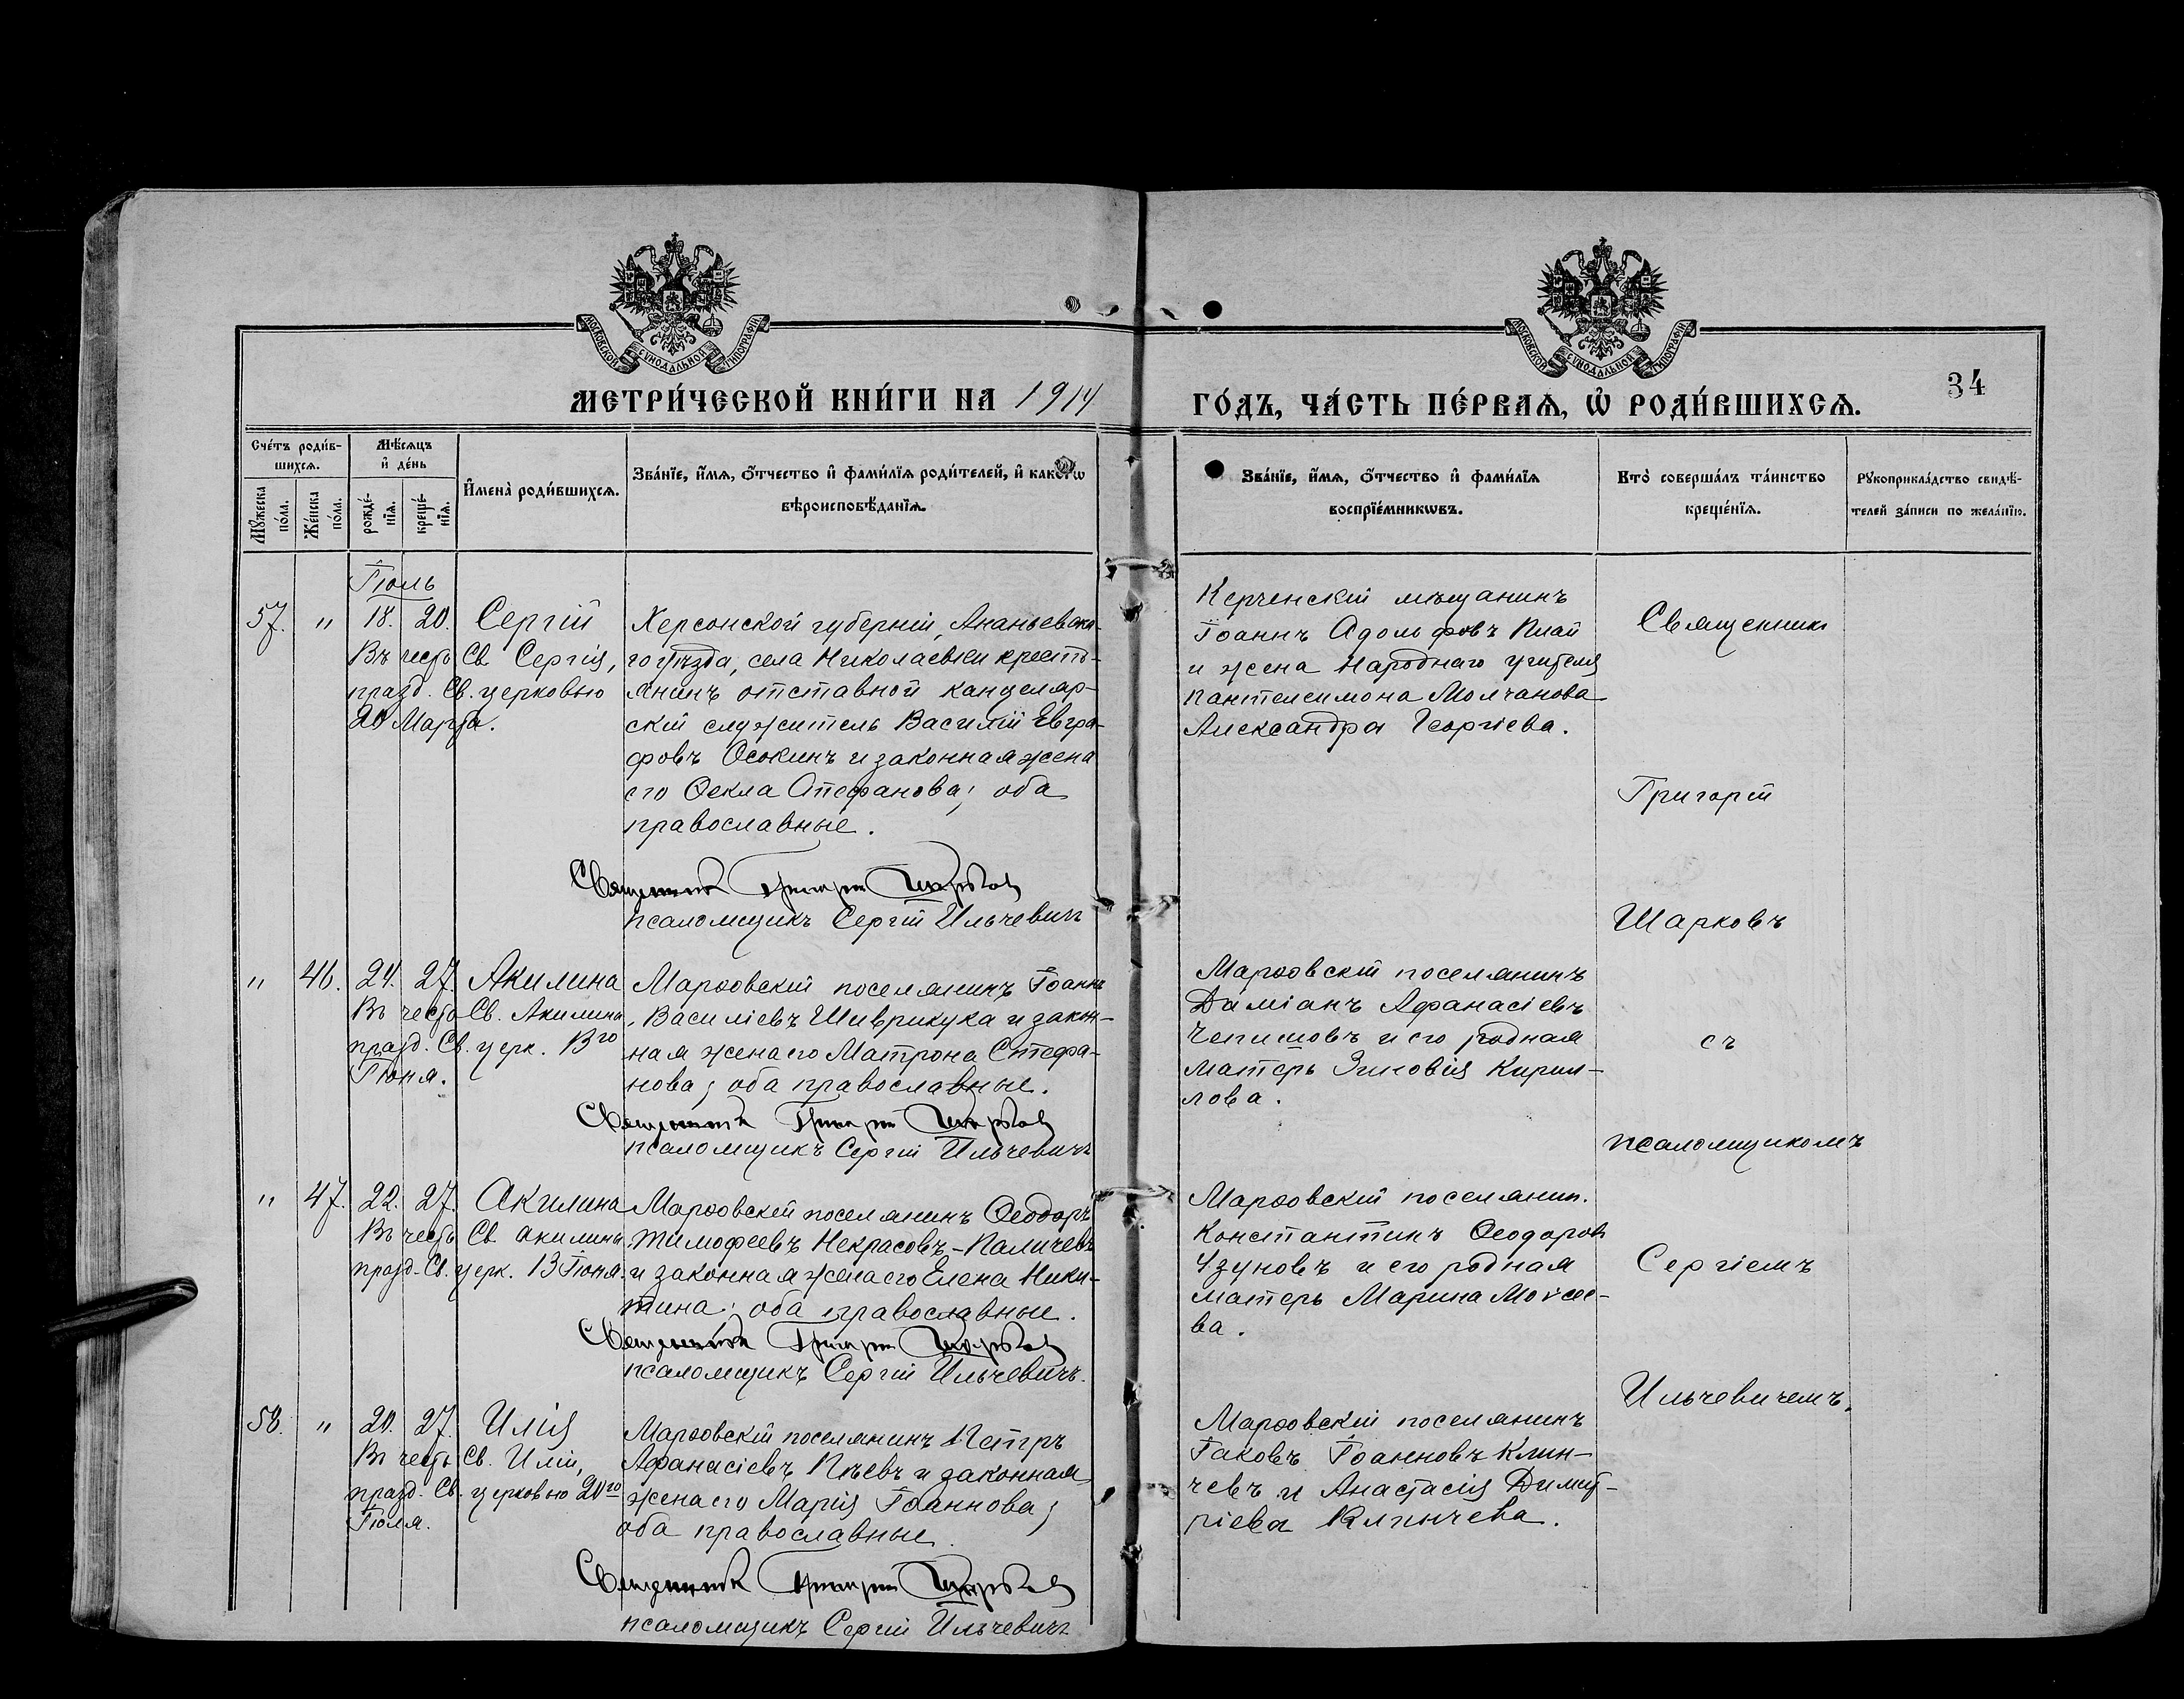 МОСКОВСКОЙ СѴНОДАЛЬНОЙ ТИПОГРАФІИ
МОСКОВСКОЙ СѴНОДАЛЬНОЙ ТИПОГРАФІИ
МЕТРИ́ЧЕСКОЙ КНИ́ГИ НА 1914
ГО́ДЪ, ЧА́СТЬ ПЕ́РВАѦ, Ѡ РОДИ́ВШИХСѦ.
34
Сче́тъ роди́в-
шихсѧ.
Мѣ́сѧцъ
и де́нь
Мꙋжеска
по́ла.
Же́нска
по́ла.
рожде́-
нїѧ.
креще́-
нїѧ.
Имена̀ роди́вшихсѧ.
Зва́нїе, и́мѧ, о́тчество и фами́лїѧ роди́телей, и како́гѡ
вѣроисповѣ́данїѧ.
Зва́нїе, и́мѧ, о́тчество и фами́лїѧ
воспрїе́мникѡвъ.
Кто̀ соверша́лъ та́инство
креще́нїѧ.
Рꙋкоприкла́дство свидѣ́-
телей за́писи по жела́нїю.
Іюль
57. " 18. 20. Сергій
Въ честь Св. Сергія,
празд. Св. церковью
20 Марта.
Херсонской губерніи, Ананьевска-
го уѣзда, села Николаевки кресть-
янинъ отставной канцеляр-
скій служитель Василій Евгра-
фовъ Осокинъ и законная жена
его Ѳекла Стефанова; оба
православные.
Священникъ Григорій Шарковъ
псаломщикъ Сергій Ильчевичъ
Керченскій мѣщанинъ
Іоаннъ Адольфовъ Плай
и жена народнаго учителя
Пантелеимона Молчанова
Александра Георгіева.
Священникъ
Григорій
Шарковъ
съ
псаломщикомъ
Сергіемъ
Ильчевичемъ.
" 46. 24. 27. Акилина
Въ честь Св. Акилины,
празд. Св. церк. 13го
Іюня.
Марѳовскій поселянинъ Іоаннъ
Василіевъ Шиврикука и закон-
ная жена его Матрона Стефа-
нова; оба православные.
Священникъ Григорій Шарковъ
псаломщикъ Сергій Ильчевичъ
Марѳовскій поселянинъ
Даміанъ Афанасіевъ
Чепишовъ и его родная
матерь Зиновія Кирил-
лова.
" 47. 22. 27. Акилина
Въ честь Св. Акилины
празд. Св. церк. 13 Іюня.
Марѳовскій поселянинъ Ѳеодоръ
Тимофеевъ Некрасовъ-Паличевъ
и законная жена его Елена Ники-
тина; оба православные.
Священникъ Григорій Шарковъ
псаломщикъ Сергій Ильчевичъ.
Марѳовскій поселянин.
Константинъ Ѳеодоровъ
Узуновъ и его родная
матерь Марина Моѵсее-
ва.
58. " 20. 27. Илія
Въ честь Св. Иліи,
празд. Св. церковью 20го
Іюля.
Марѳовскій поселянинъ Петръ
Афанасіевъ Пѣевъ и законная
жена его Марія Іоаннова;
оба православные.
Священникъ Григорій Шарковъ
псаломщикъ Сергій Ильчевичъ
Марѳовскій поселянинъ
Іаковъ Іоанновъ Клин-
чевъ и Анастасія Димит-
ріева Клинчева.